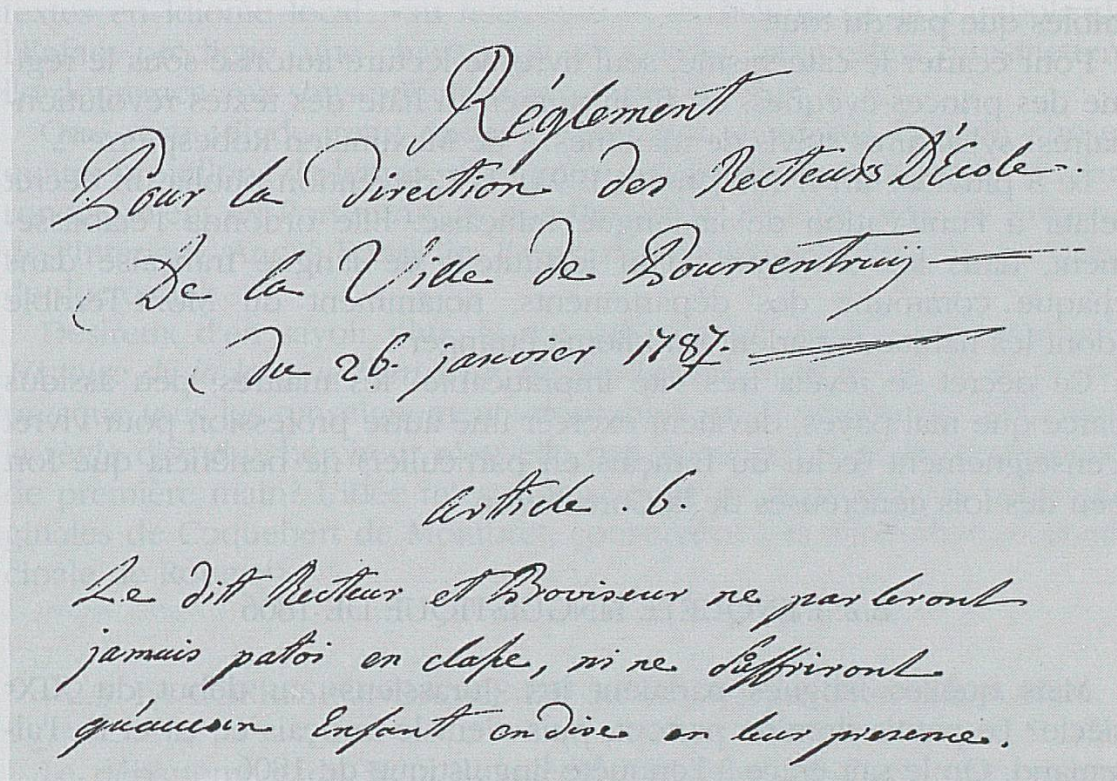 Réglement
Pour la direction des Recteurs D'École.
De la Ville de Pourrentruij
du 26. janvier 1787.
article. 6.
Le dit Recteur et Proviseur ne parleront
jamais patoi en classe, ni ne suffriront
qu'aucun Enfant en dise en leur presence.